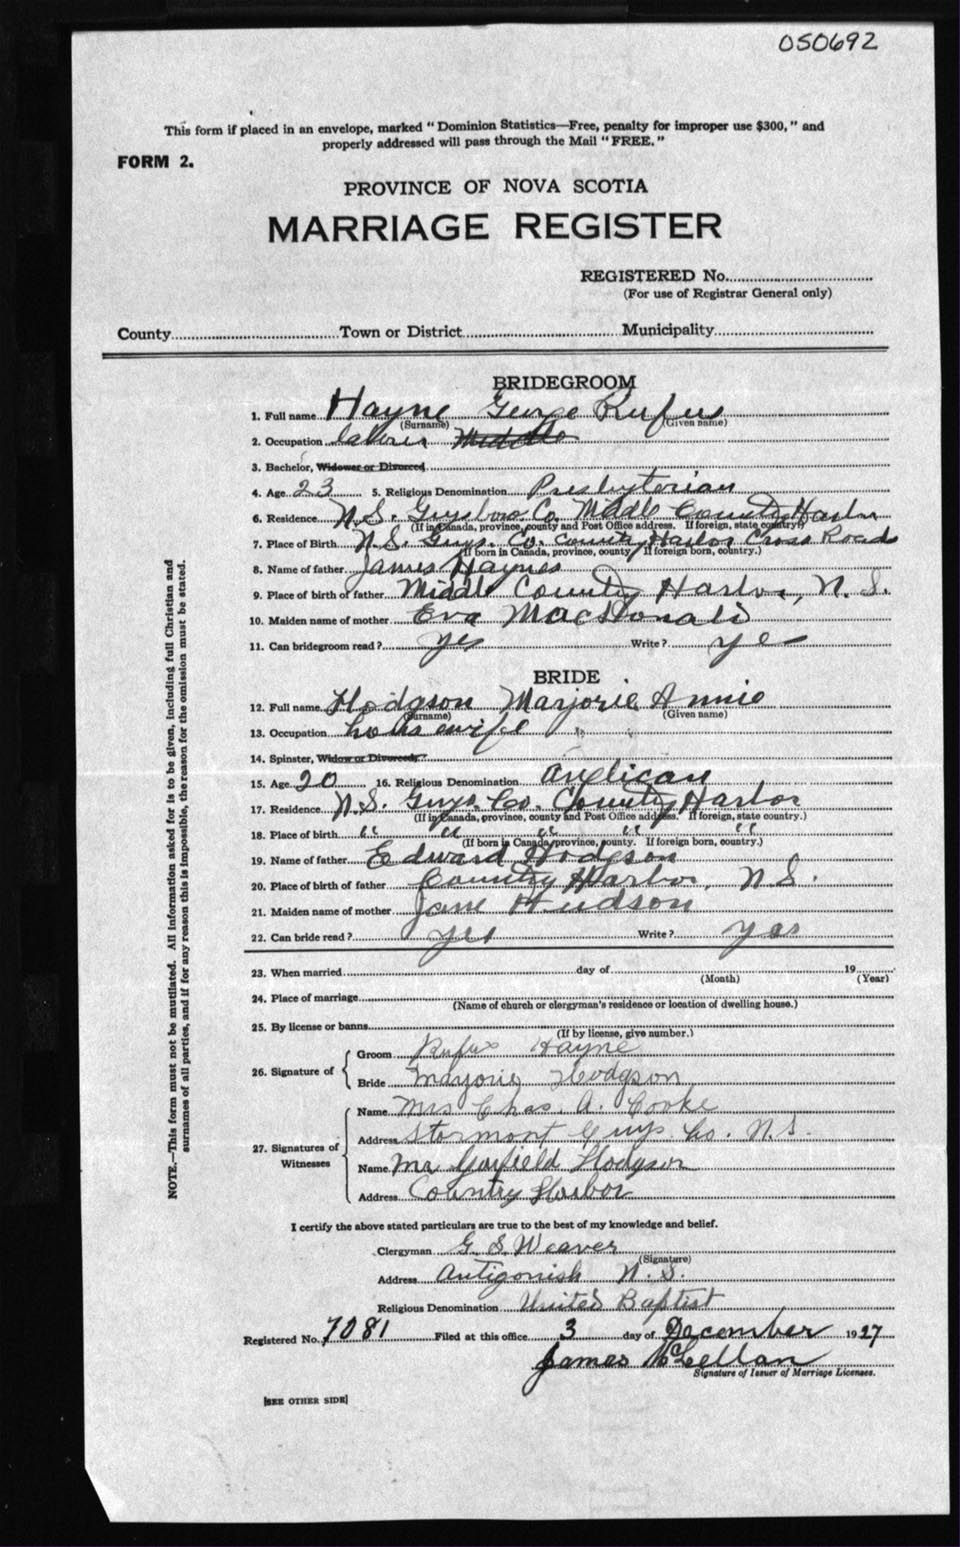 050692
This form if placed in an envelope, marked "Dominion Statistics—Free, penalty for improper use $300," and
properly addressed will pass through the Mail "FREE."
FORM 2.
PROVINCE OF NOVA SCOTIA
MARRIAGE REGISTER
REGISTERED No.
(For use of Registrar General only)
County Town or District Municipality
BRIDEGROOM
1. Full name Hayne George Rufus
(Surname) (Given name)
2. Occupation Middle
3. Bachelor, Widower or Divorced
4. Age 23 5. Religious Denomination Presbyterian
6. Residence N.S. Guysboro Co. Middle Country Harbor
(If in Canada, province, county and Post Office address. If foreign, state country.)
7. Place of Birth N.S. Guys. Co. Country Harbor Cross Roads
(If born in Canada, province, county If foreign born, country.)
8. Name of father James Haynes
9. Place of birth of father Middle Country Harbor, N.S.
10. Maiden name of mother Eva MacDonald
11. Can bridegroom read? yes Write? yes
BRIDE
12. Full name Hodgson Marjorie Annie
(Surname) (Given name)
13. Occupation housewife
14. Spinster, Widow or Divorced?
15. Age 20 16. Religious Denomination Anglican
17. Residence N.S. Guys. Co. Country Harbor
(If in Canada, province, county and Post Office address. If foreign, state country.)
18. Place of birth " " " " "
(If born in Canada, province, county. If foreign born, country.)
19. Name of father Edward Hodgson
20. Place of birth of father Country Harbor, N.S.
21. Maiden name of mother Jane Hudson
22. Can bride read? yes Write? yes
23. When married day of 19
(Month) (Year)
24. Place of marriage
(Name of church or clergyman's residence or location of dwelling house.)
25. By license or banns
(If by license, give number.)
26. Signature of
Groom Rufus Hayne
Bride Marjorie Hodgson
27. Signatures of Witnesses
Name Mrs Chas. A. Cooke
Address Stormont Guys. Co. N.S.
Name Mr Garfield Hodgson
Address Country Harbor
I certify the above stated particulars are true to the best of my knowledge and belief.
Clergyman G. S. Weaver
(Signature)
Address Antigonish N.S.
Religious Denomination United Baptist
Registered No. 7081 Filed at this office 3 day of December 1927
James McLellan
Signature of Issuer of Marriage Licenses.
[SEE OTHER SIDE]
NOTE.—This form must not be mutilated. All information asked for is to be given, including full Christian and
surnames of all parties, and if for any reason this is impossible, the reason for the omission must be stated.